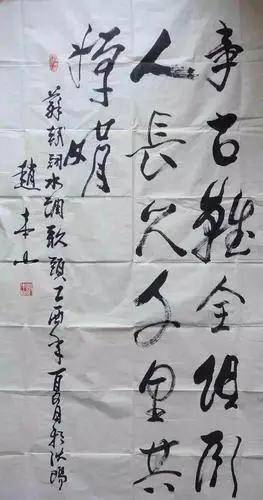 事古難全但願
人長久千里共
嬋娟
蘇軾詞水調歌頭丁酉年夏月於沈陽
趙本山